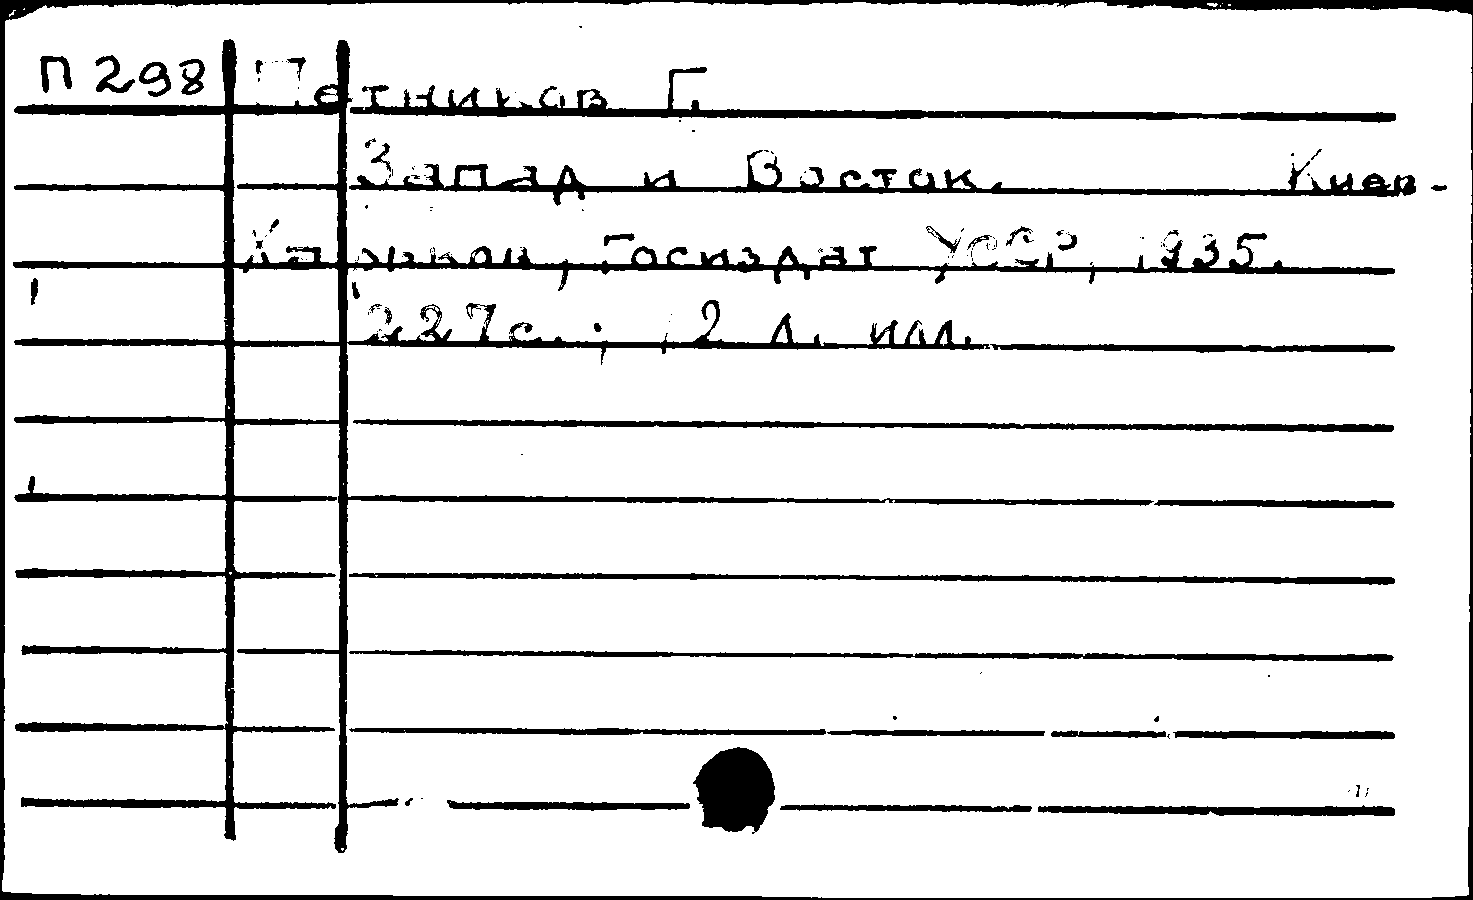 П 298 Петников Г.
Запад и Восток. Киев-
Харьков, Госиздат УССР, 1935.
227с.; 2 л. илл.